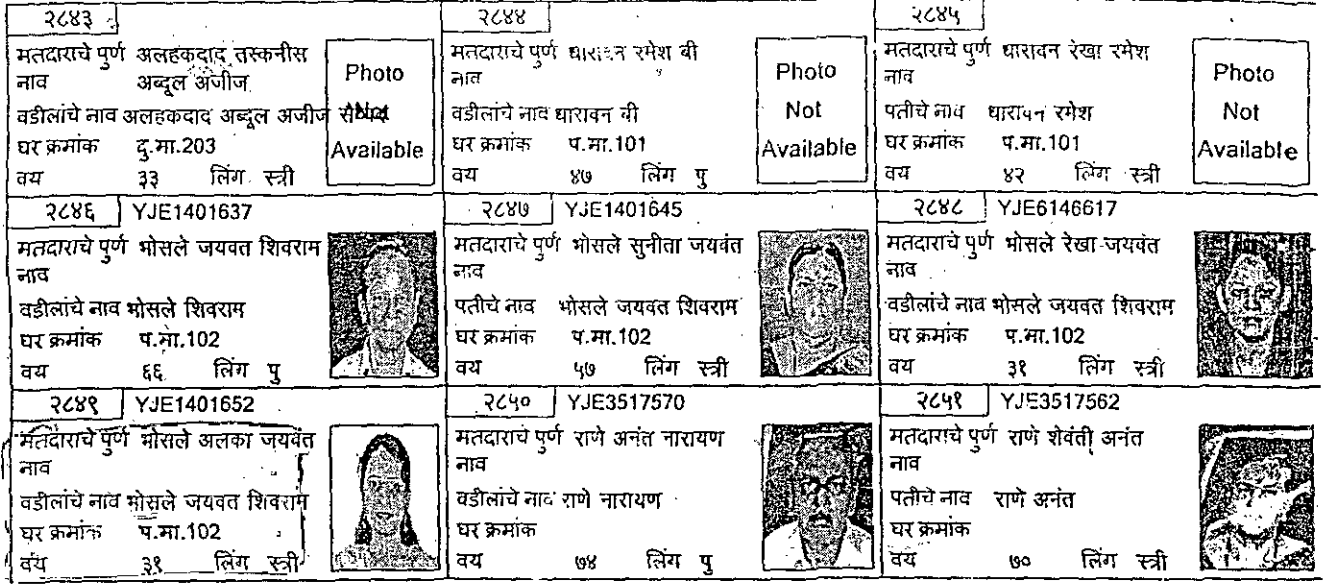 २८४३
मतदाराचे पुर्ण अलहकदाद तस्कनीस
नाव अब्दूल अजीज
वडीलांचे नाव अलहकदाद अब्दूल अजीज
घर क्रमांक दु.मा.203
वय ३३ लिंग स्त्री
Photo
Not
Available
२८४४
मतदाराचे पुर्ण धारावन रमेश बी
नाव
वडीलांचे नाव धारावन बी
घर क्रमांक प.मा.101
वय ४७ लिंग पु
Photo
Not
Available
२८४५
मतदाराचे पुर्ण धारावन रेखा रमेश
नाव
पतीचे नाव धारावन रमेश
घर क्रमांक प.मा.101
वय ४२ लिंग स्त्री
Photo
Not
Available
२८४६ YJE1401637
मतदाराचे पुर्ण भोसले जयवत शिवराम
नाव
वडीलांचे नाव भोसले शिवराम
घर क्रमांक प.मा.102
वय ६६ लिंग पु
२८४७ YJE1401645
मतदाराचे पुर्ण भोसले सुनीता जयवंत
नाव
पतीचे नाव भोसले जयवत शिवराम
घर क्रमांक प.मा.102
वय ५७ लिंग स्त्री
२८४८ YJE6146617
मतदाराचे पुर्ण भोसले रेखा जयवंत
नाव
वडीलांचे नाव भोसले जयवत शिवराम
घर क्रमांक प.मा.102
वय ३१ लिंग स्त्री
२८४९ YJE1401652
मतदाराचे पुर्ण भोसले अलका जयवंत
नाव
वडीलांचे नाव भोसले जयवत शिवराम
घर क्रमांक प.मा.102
वय ३९ लिंग स्त्री
२८५० YJE3517570
मतदाराचे पुर्ण राणे अनंत नारायण
नाव
वडीलांचे नाव राणे नारायण
घर क्रमांक
वय ७४ लिंग पु
२८५१ YJE3517562
मतदाराचे पुर्ण राणे शेवंती अनंत
नाव
पतीचे नाव राणे अनंत
घर क्रमांक
वय ७० लिंग स्त्री